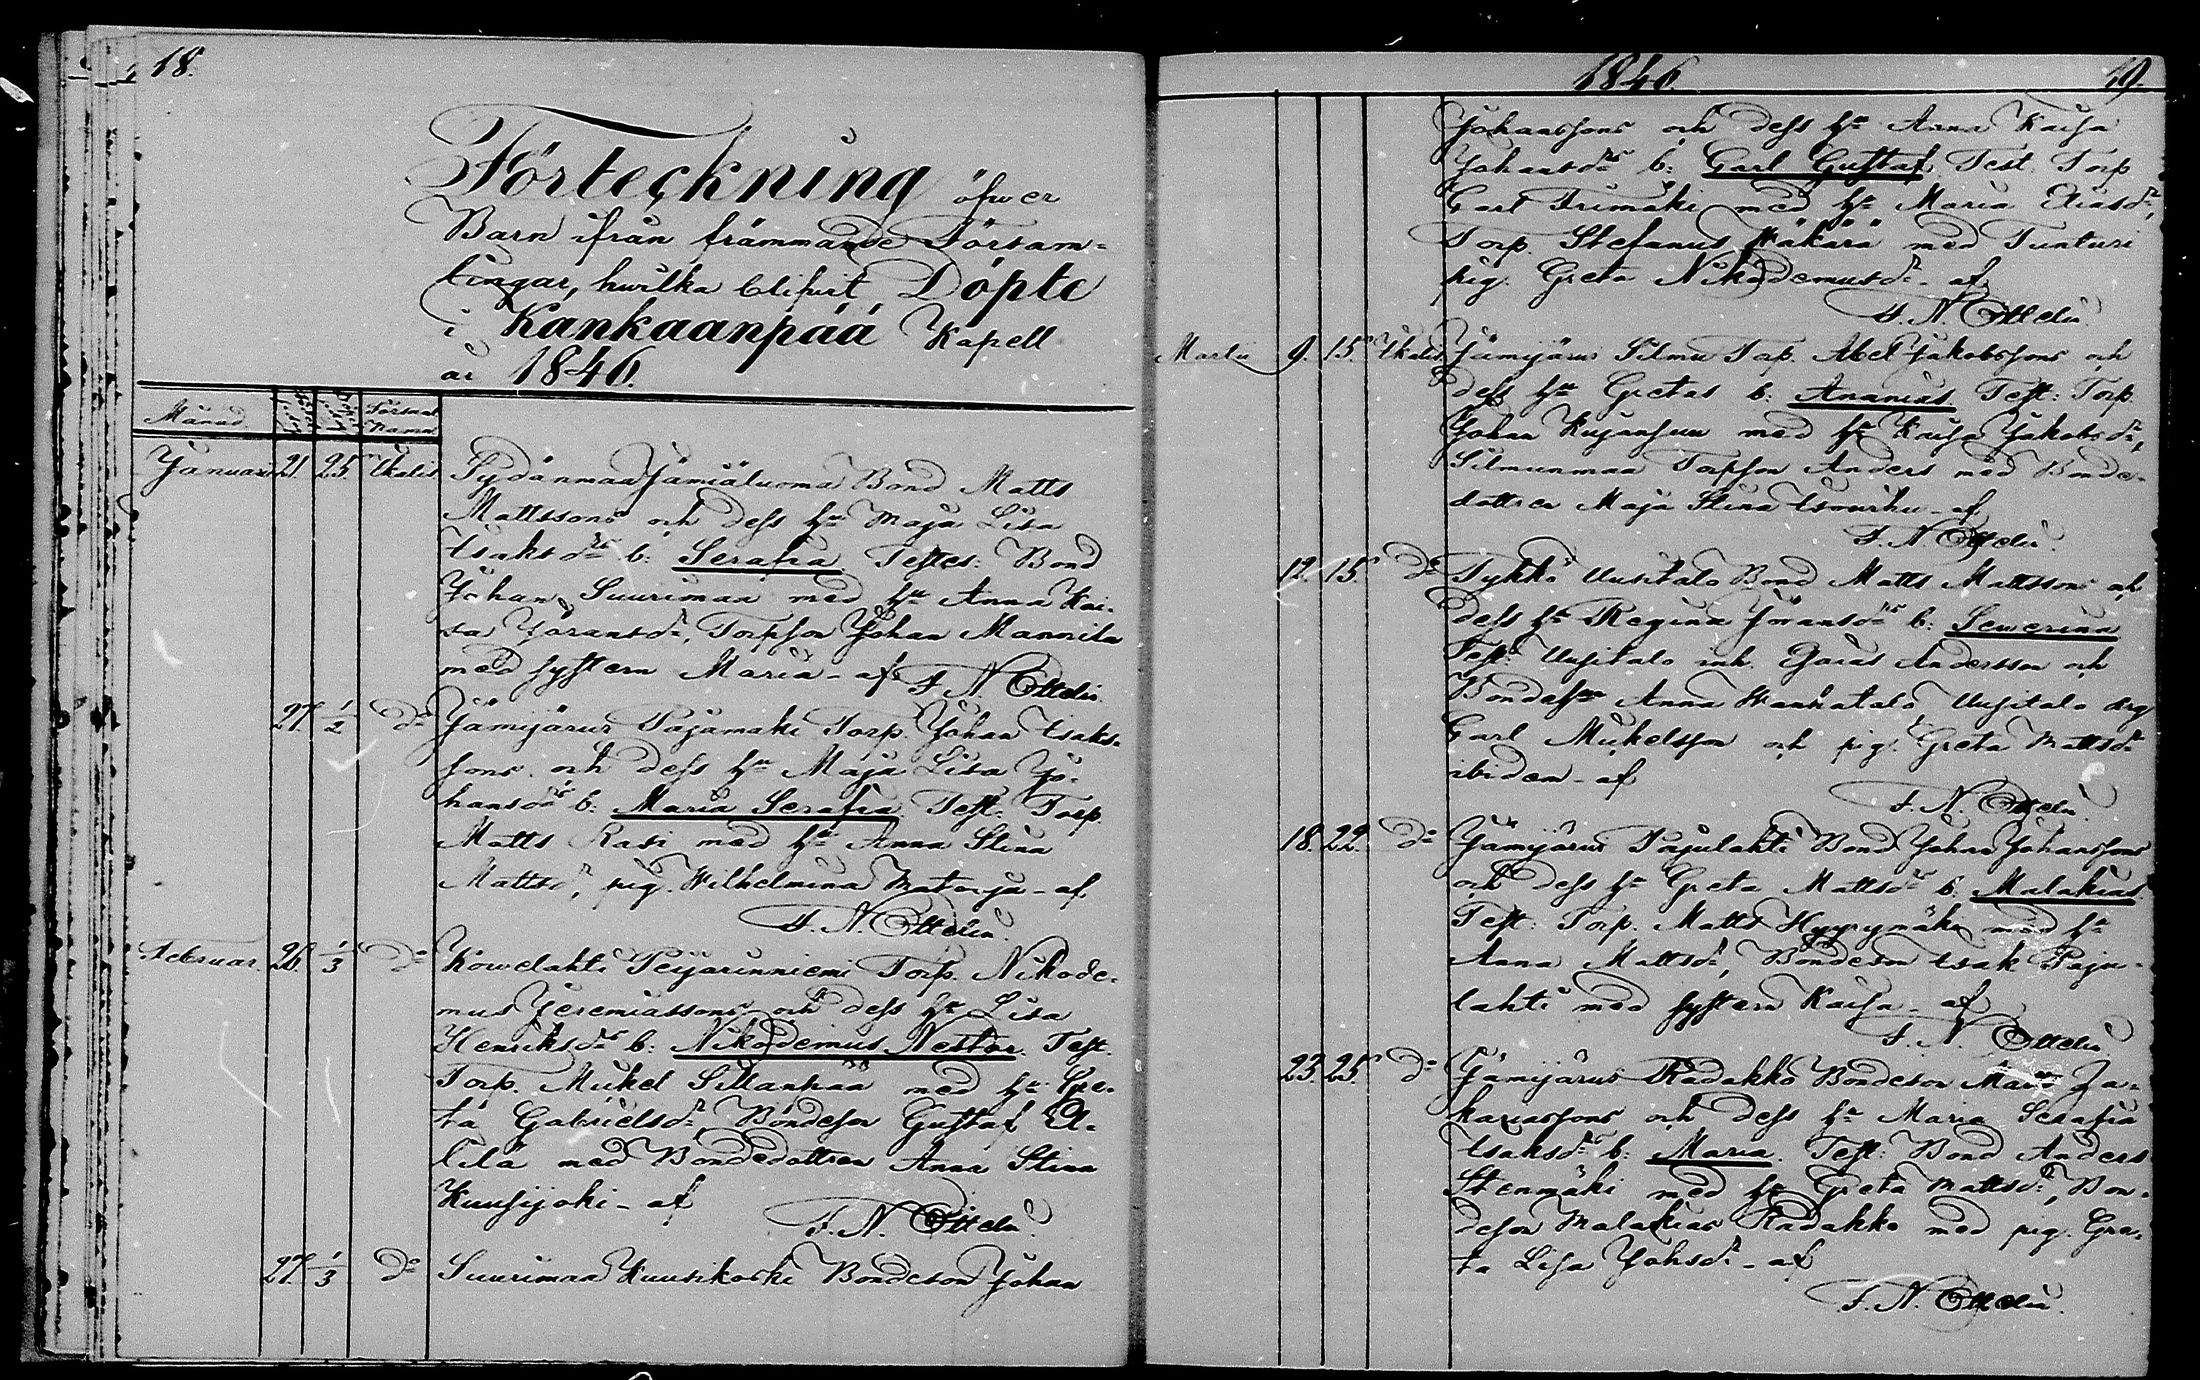 18.
Förteckning öfwer
Barn ifrån främmande Försam-
lingar, hwilka blifwit Döpte
i Kankaanpää Kapell
år 1846.
Månad Församl. Namn
Januari 21. 25. Ikalis Sydänmaa Jämiäluoma Bond Matts
Mattssons och dess hu Maja Lisa
Isaksdrs b: Serafia Testes: Bond
Johan Suurimaa med hu Anna Kai-
sa Göransdr, Torpson Johan Mannila
med systern Maria - af F. N. Ottelin.
27. 1/2 do Jämijärwi Pajamäki Torp. Johan Isaks-
sons och dess hu Maja Lisa Jo-
hansdrs b: Maria Serafia Test: Torp.
Matts Rasi med hu Anna Stina
Mattsdr, pig. Wilhelmina Matonja - af
F. N. Ottelin.
Februar. 26. 1/3 do Kowelahti Peijarinniemi Torp. Nikode-
mus Jeremiassons och dess hu Lisa
Henriksdrs b: Nikodemus Nestor. Test.
Torp. Mickel Sillanpää med hu Gre-
ta Gabrielsdr, Bondeson Gustaf
med Bondedottren Anna Stina
Kuusijoki - af F. N. Ottelin.
27. 1/3 do Suurimaa Kuusikoski Bondeson Johan
1846. 19.
Johanssons och dess hu Anna Kaisa
Johansdrs b: Carl Gustaf Test. Torp
Carl Trimäki med hu Maria Eliasdr,
Torp. Stefanus Häkärä med Tunturi
pig. Greta Nikodemusdr - af
F. N. Ottelin.
Martii 9. 15. Ikalis Jämijärwi Silmu Torp. Abel Jakobssons och
dess hu Gretas b: Ananias. Test: Torp.
Johan Kujansuu med hu Kaisa Jakobsdr,
Silmunmaa Torpson Anders med Bonde-
dottren Maja Stina Isowirku - af
F. N. Ottelin.
12. 15. do Tykkö Uusitalo Bond Matts Mattssons och
dess hu Regina Göransdrs b: Sewerina
Test: Uusitalo inh. Esaias Andersson och
Bondehu Anna Hannatalo Uusitalo drg
Carl Mickelsson och pig. Greta Mattsdr
ibidem - af
F. N. Ottelin.
18. 22. do Jämijärwi Pajulahti Bond Johan Johanssons
och dess hu Greta Mattsdrs b. Malakias.
Test: Torp. Matts Hyyrymäki med hu
Anna Mattsdr, Bondeson Isak Paju-
lahti med systern Kaisa - af
F. N. Ottelin
23. 25. do Jämijärwi Kadakko Bondeson Matts Za-
kariassons och dess hu Maria Serafia
Isaksdrs b: Maria. Test: Bond Anders
Stenmäki med hu Greta Mattsdr, Bon-
deson Malakias Kadakko med pig. Gre-
ta Lisa Johsdr - af
F. N. Ottelin.